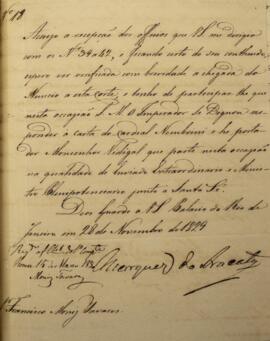 Nº 13
Accuzo a recepção dos officios que V.S. me dirigio
com os Nos 39 a 42, e ficando certo do seu contheudo,
espero ver verificada com brevidade a chegada do
Nuncio a esta Corte, e tenho de participar-lhe que
nesta occasião S. M. O Imperador Se Dignou res-
ponder á carta do Cardial Nembrini e he porta-
dor Monsenhor Vidigal que parte nesta occasião
na qualidade de Enviado Extraordinario e Minis-
tro Plenipotenciario junto á Santa Sé.
Deos Guarde a V.S. Palacio do Rio de
Janeiro em 28 de Novembro de 1829
Roma 15
Moniz Tavares
Marquez do Aracaty
Sr. Francisco Moniz Tavares.